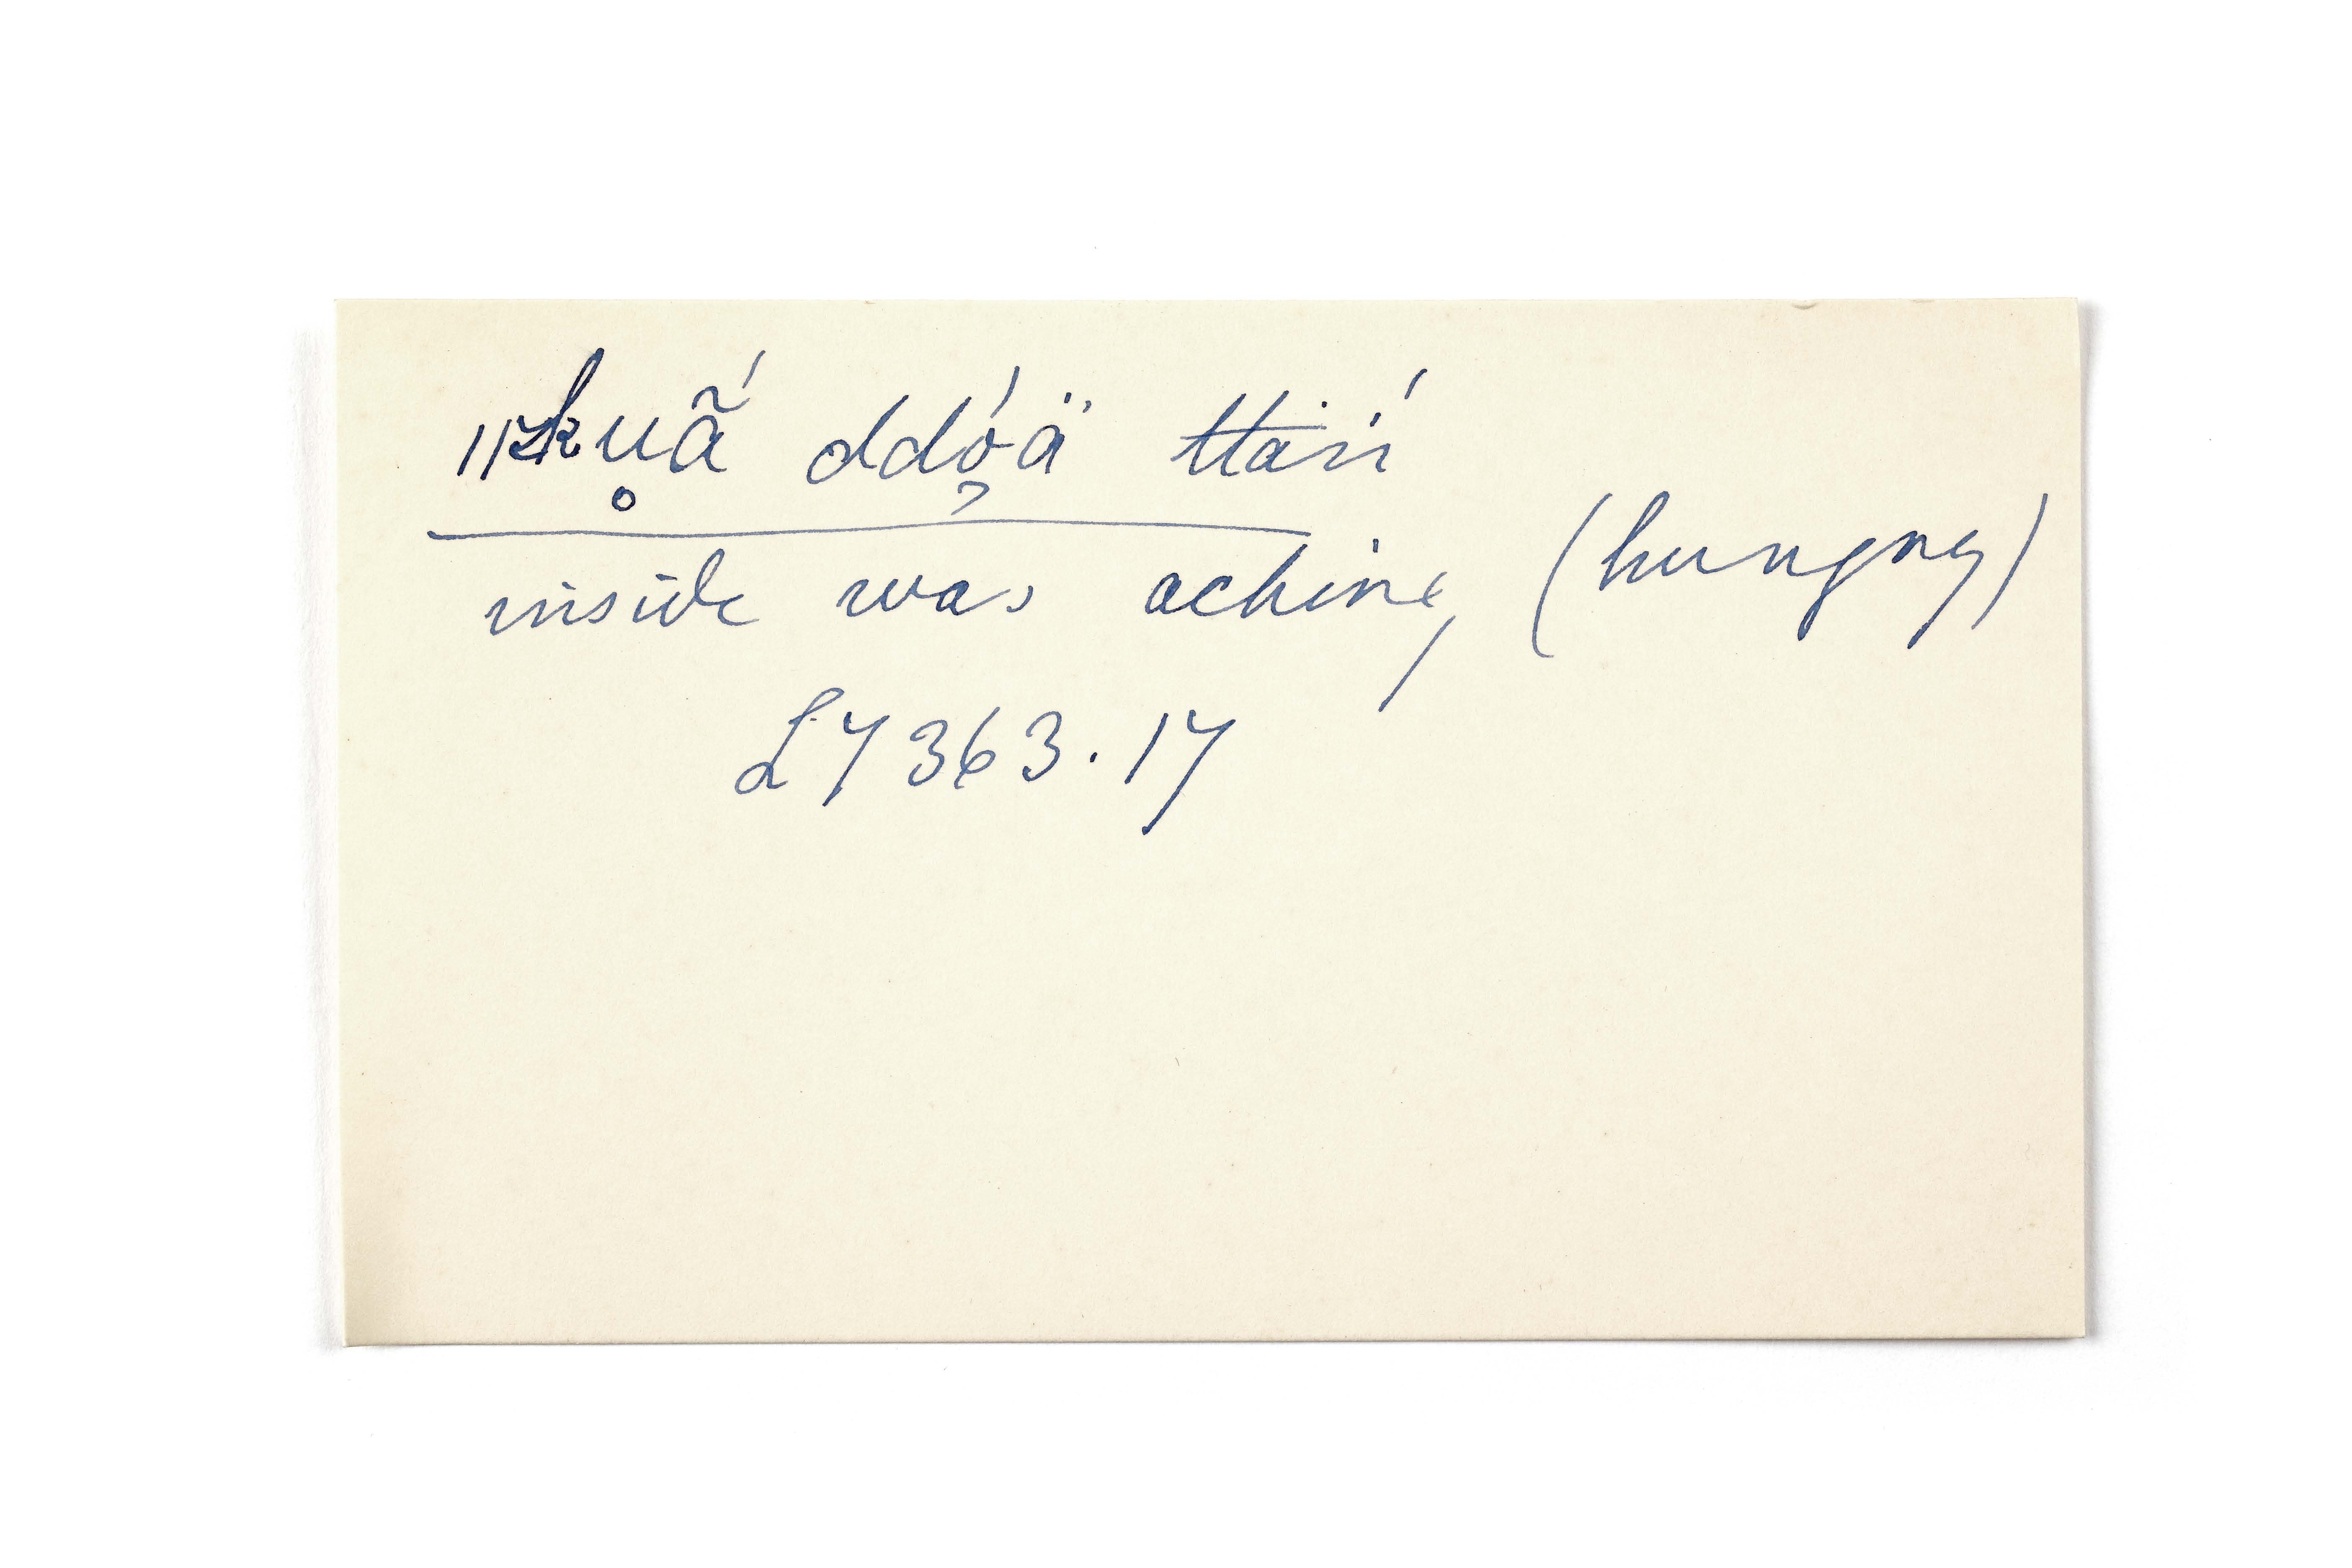 ddóä ttaií
inside was aching (hungry)
L7 363.17